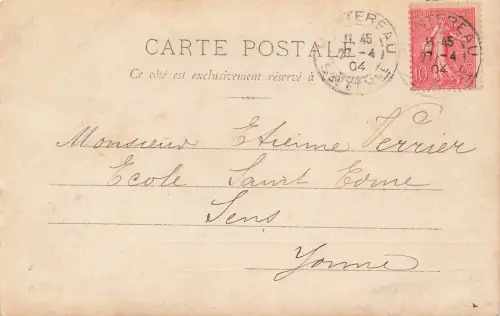 CARTE POSTALE
Ce côté est exclusivement réservé à
MONTEREAU
11 45
27 -4
04
10
Monsieur Etienne Verrier
Ecole Saint Edme
Sens
Yonne